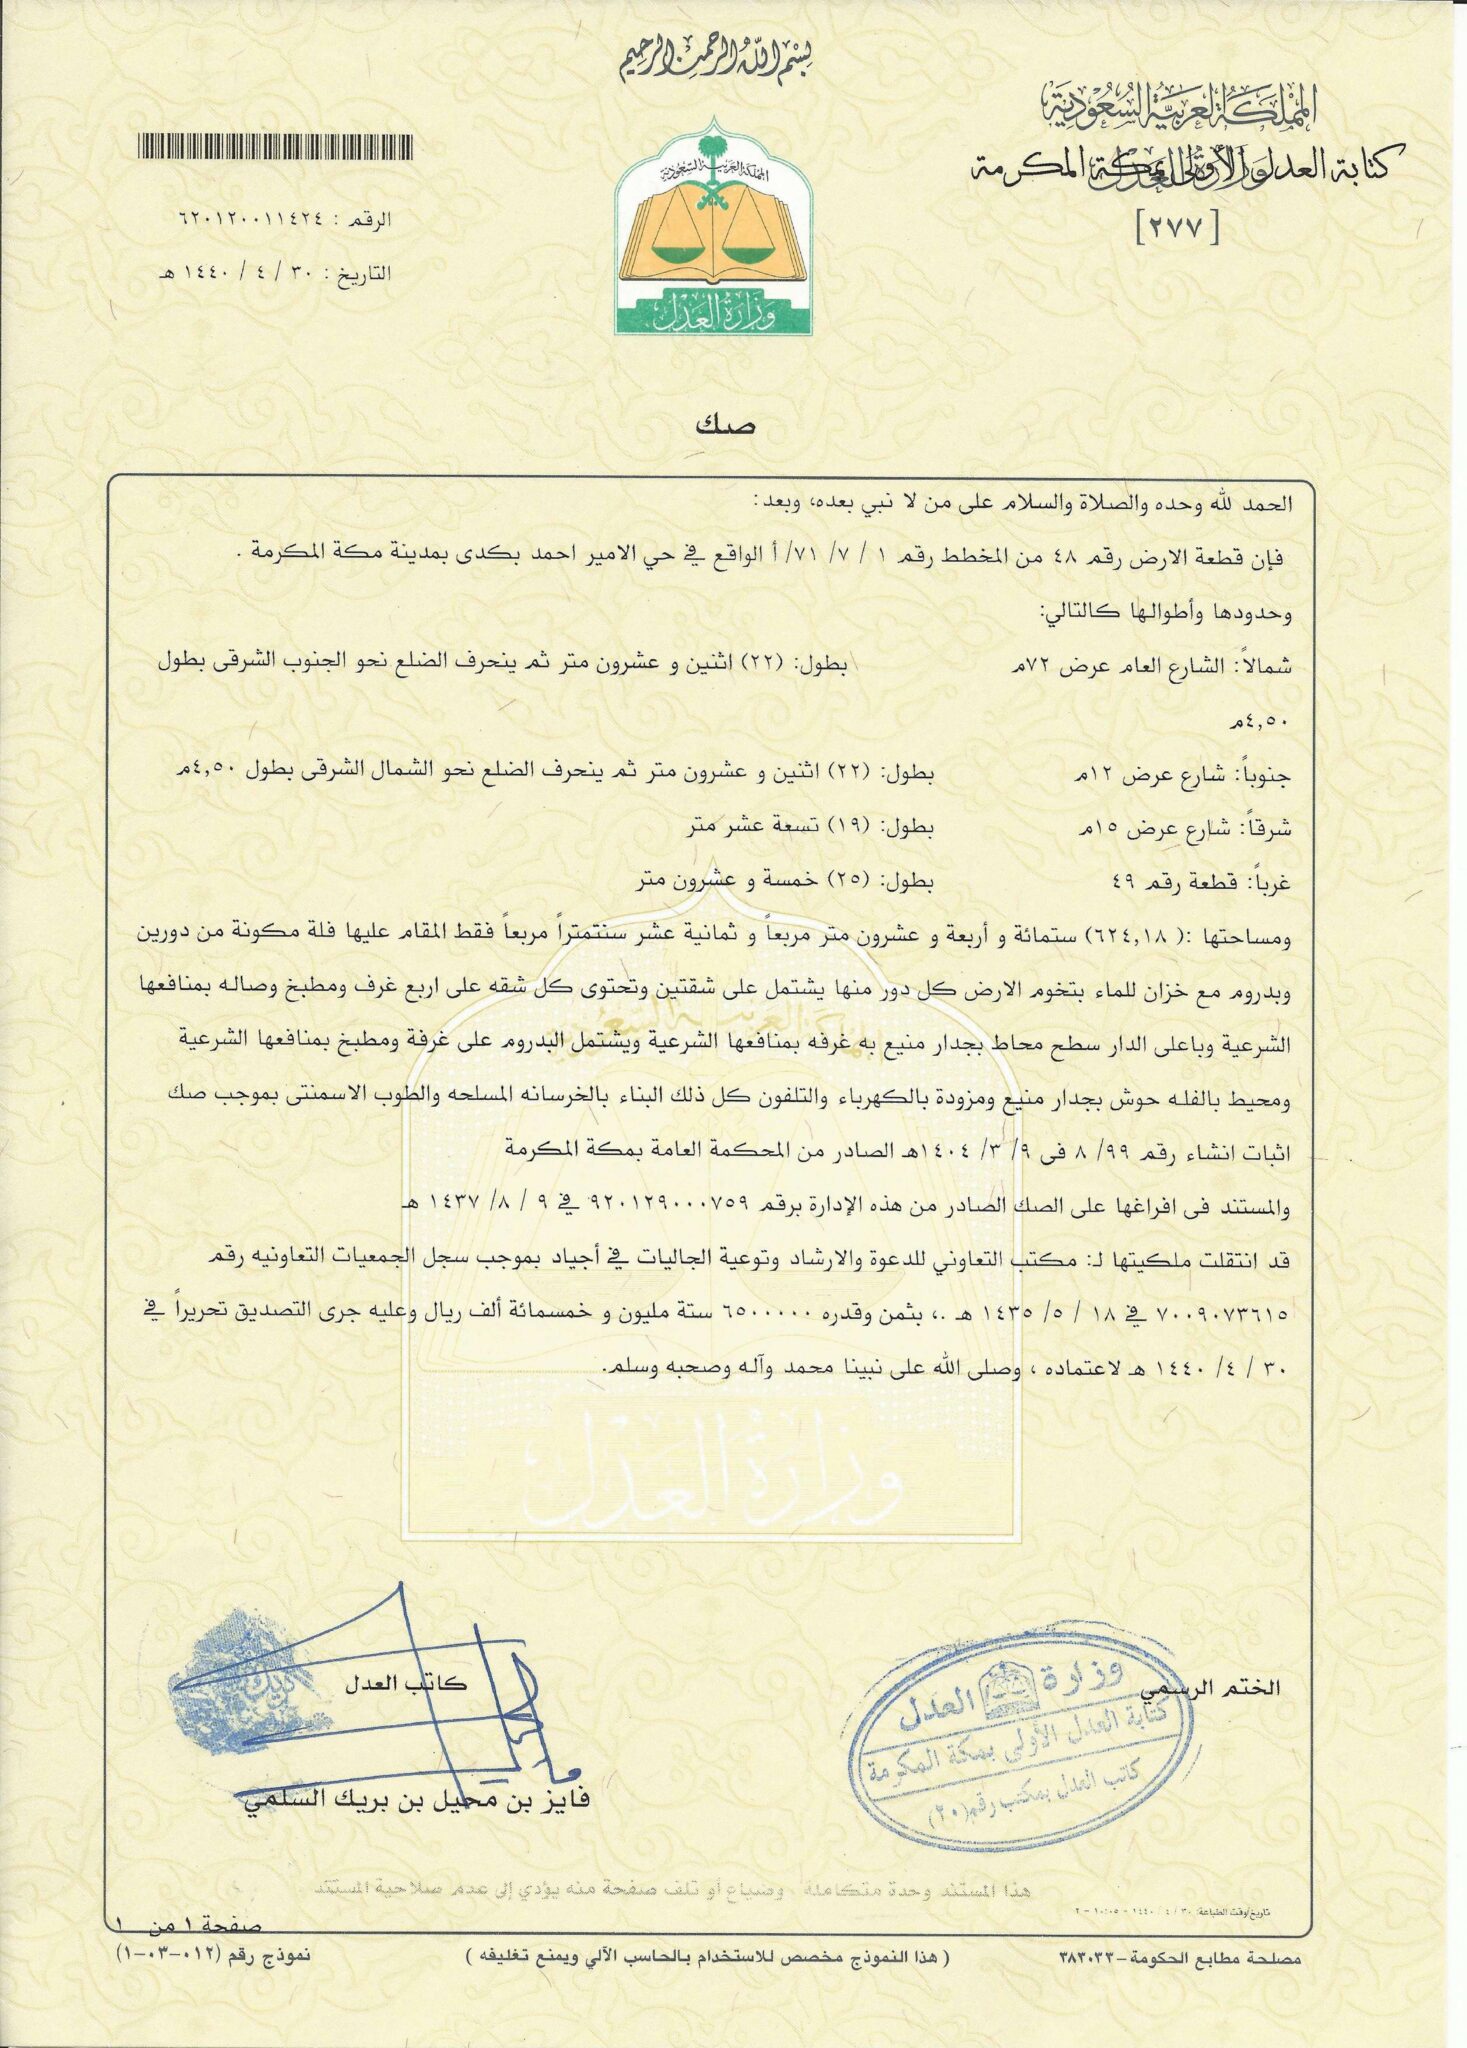 بسم الله الرحمن الرحيم
المملكة العربية السعودية
كتابة العدل الأولى بمكة المكرمة
[٢٧٧]
الرقم : ٦٢٠١٢٠٠١١٤٢٤
التاريخ : ٣٠ / ٤ / ١٤٤٠ هـ
المملكة العربية السعودية
وزارة العدل
صك
الحمد لله وحده والصلاة والسلام على من لا نبي بعده، وبعد:
فإن قطعة الارض رقم ٤٨ من المخطط رقم ١ / ٧ /٧١ /أ الواقع في حي الامير احمد بكدى بمدينة مكة المكرمة .
وحدودها وأطوالها كالتالي:
شمالاً: الشارع العام عرض ٧٢م بطول: (٢٢) اثنين و عشرون متر ثم ينحرف الضلع نحو الجنوب الشرقى بطول
٤,٥٠م
جنوباً: شارع عرض ١٢م بطول: (٢٢) اثنين و عشرون متر ثم ينحرف الضلع نحو الشمال الشرقى بطول ٤,٥٠م
شرقاً: شارع عرض ١٥م بطول: (١٩) تسعة عشر متر
غرباً: قطعة رقم ٤٩ بطول: (٢٥) خمسة و عشرون متر
ومساحتها :( ٦٢٤,١٨) ستمائة و أربعة و عشرون متر مربعاً و ثمانية عشر سنتمتراً مربعاً فقط المقام عليها فلة مكونة من دورين
وبدروم مع خزان للماء بتخوم الارض كل دور منها يشتمل على شقتين وتحتوى كل شقه على اربع غرف ومطبخ وصاله بمنافعها
الشرعية وباعلى الدار سطح محاط بجدار منيع به غرفه بمنافعها الشرعية ويشتمل البدروم على غرفة ومطبخ بمنافعها الشرعية
ومحيط بالفله حوش بجدار منيع ومزودة بالكهرباء والتلفون كل ذلك البناء بالخرسانه المسلحه والطوب الاسمنتى بموجب صك
اثبات انشاء رقم ٩٩/ ٨ فى ٩/ ٣/ ١٤٠٤هـ الصادر من المحكمة العامة بمكة المكرمة
والمستند فى افراغها على الصك الصادر من هذه الإدارة برقم ٩٢٠١٢٩٠٠٠٧٥٩ في ٩ / ٨/ ١٤٣٧ هـ
قد انتقلت ملكيتها لـ: مكتب التعاوني للدعوة والارشاد وتوعية الجاليات في أجياد بموجب سجل الجمعيات التعاونيه رقم
٧٠٠٩٠٧٣٦١٥ في ١٨ / ٥/ ١٤٣٥ هـ .، بثمن وقدره ٦٥٠٠٠٠٠ ستة مليون و خمسمائة ألف ريال وعليه جرى التصديق تحريراً في
٣٠ / ٤/ ١٤٤٠ هـ لاعتماده ، وصلى الله على نبينا محمد وآله وصحبه وسلم.
وزارة العدل
الختم الرسمي
وزارة العدل
كتابة العدل الأولى بمكة المكرمة
كاتب العدل بمكتب رقم (٢٠)
كاتب العدل
فايز بن محيل بن بريك السلمي
هذا المستند وحدة متكاملة ، وضياع أو تلف صفحة منه يؤدي إلى عدم صلاحية المستند
صفحة ١ من ١
مصلحة مطابع الحكومة - ٣٨٣٠٣٣
( هذا النموذج مخصص للاستخدام بالحاسب الآلي ويمنع تغليفه )
نموذج رقم (٠١٢-٠٣-١)